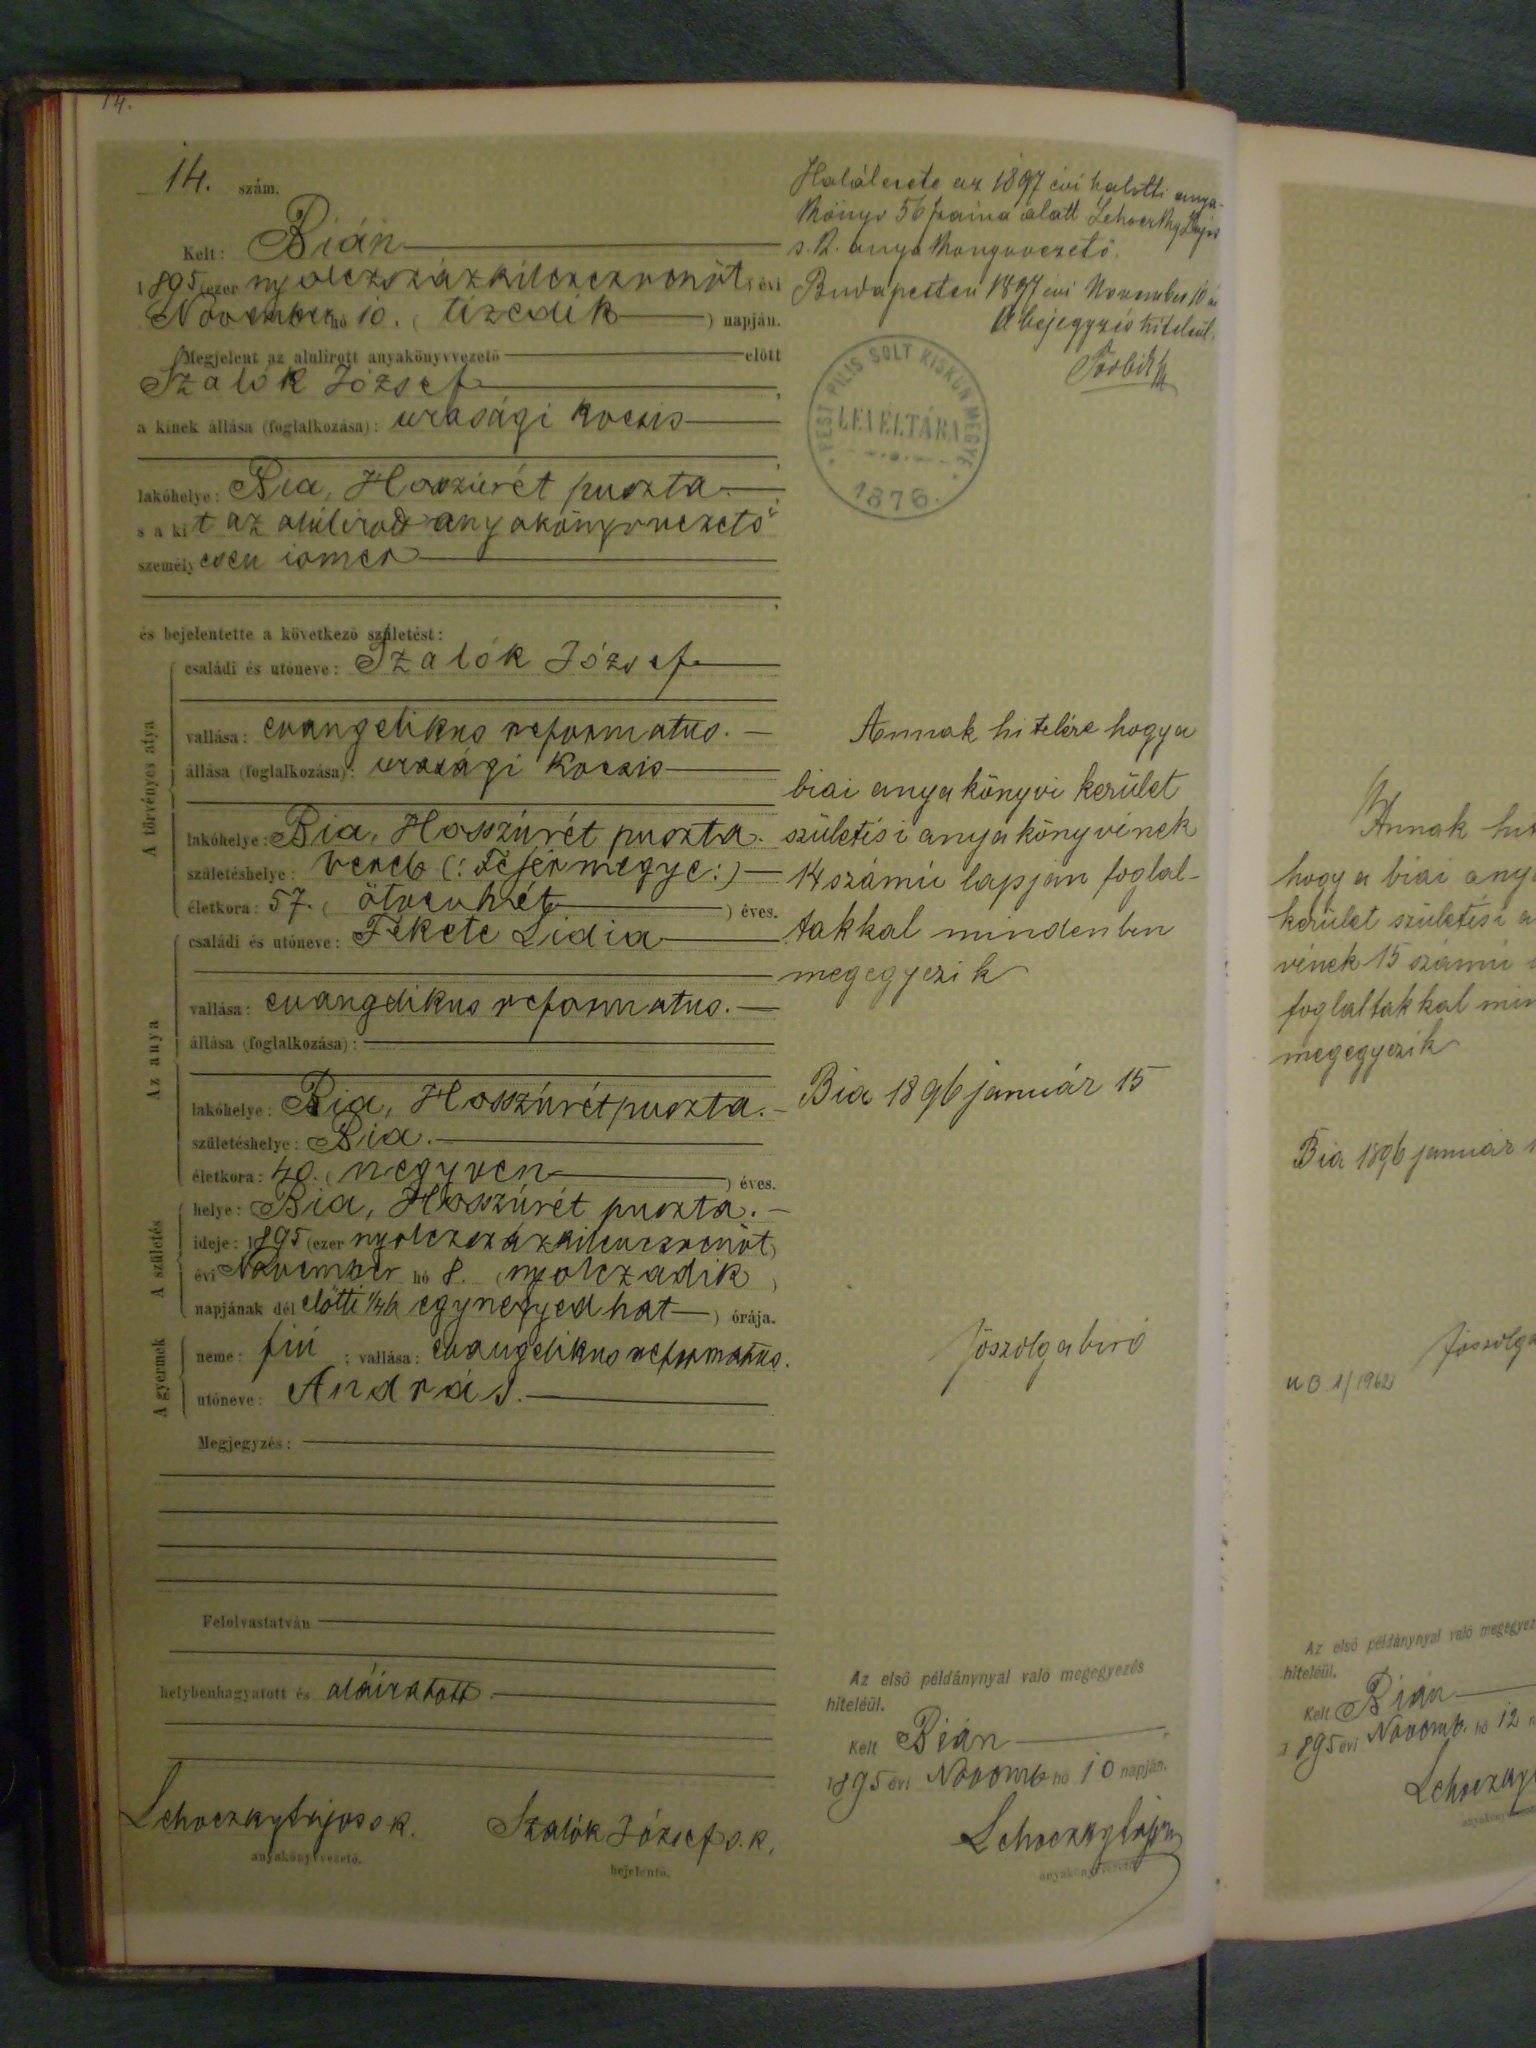 14.
14. szám.
Kelt: Bián
1895 (ezer nyolczszázkilenczvenöt) évi
November hó 10. (tizedik) napján.
Megjelent az alulirott anyakönyvvezető előtt
Szalók József,
a kinek állása (foglalkozása): urasági kocsis
,
lakóhelye: Bia, Hosszúrét puszta.
s a kit az alúlirott anyakönyvvezető
személyesen ismer
,
és bejelentette a következő születést:
A törvényes atya
családi és utóneve: Szalók József
vallása: evangelikus reformatus.
állása (foglalkozása): urasági kocsis
lakóhelye: Bia, Hosszúrét puszta.
születéshelye: Vereb (: Fejérmegye :)
életkora: 57. (ötvenhét) éves.
Az anya
családi és utóneve: Fekete Lidia
vallása: evangelikus reformatus.
állása (foglalkozása):
lakóhelye: Bia, Hosszúrét puszta.
születéshelye: Bia.
életkora: 40. (negyven) éves.
A születés
helye: Bia, Hosszúrét puszta.
ideje: 1895 (ezer nyolczszázkilenczvenöt)
évi November hó 8. (nyolczadik)
napjának dél előtti 1/4 6 egynegyed hat) órája.
A gyermek
neme: fiú; vallása: evangelikus reformatus.
utóneve: András.
Megjegyzés:
Felolvastatván
helybenhagyatott és aláiratott.
Lehoczky Lajos s. k.
anyakönyvvezető.
Szalók József s. k.
bejelentő.
Halálesete az 1897 évi halotti anya-
könyv 56 száma alatt Lehoczky Lajos
s. k. anyakönyvvezető.
Budapesten 1897 évi November 10 én
A bejegyzés hiteleül.
PEST PILIS SOLT KISKUN MEGYE
LEVÉLTÁRA
1876.
Annak hitelére hogy a
biai anyakönyvi kerület
születési anyakönyvének
14 számú lapján foglal-
takkal mindenben
megegyezik
Bia 1896 január 15
főszolgabiró
Az első példánynyal való megegyezés
hiteléül.
Kelt Bián
1895 évi Novemb hó 10 napján.
Lehoczky Lajos
anyakönyvvezető
Annak hit
hogy a biai any
kerület születési a
vének 15 számú
foglaltakkal min
megegyezik
Bia 1896 január 1
főszolga
u o 1/1962
Az első példánynyal való megegyez
hiteléül.
Kelt Bián
1895 évi Novemb. hó 12 n
Lehoczky
anyakönyv